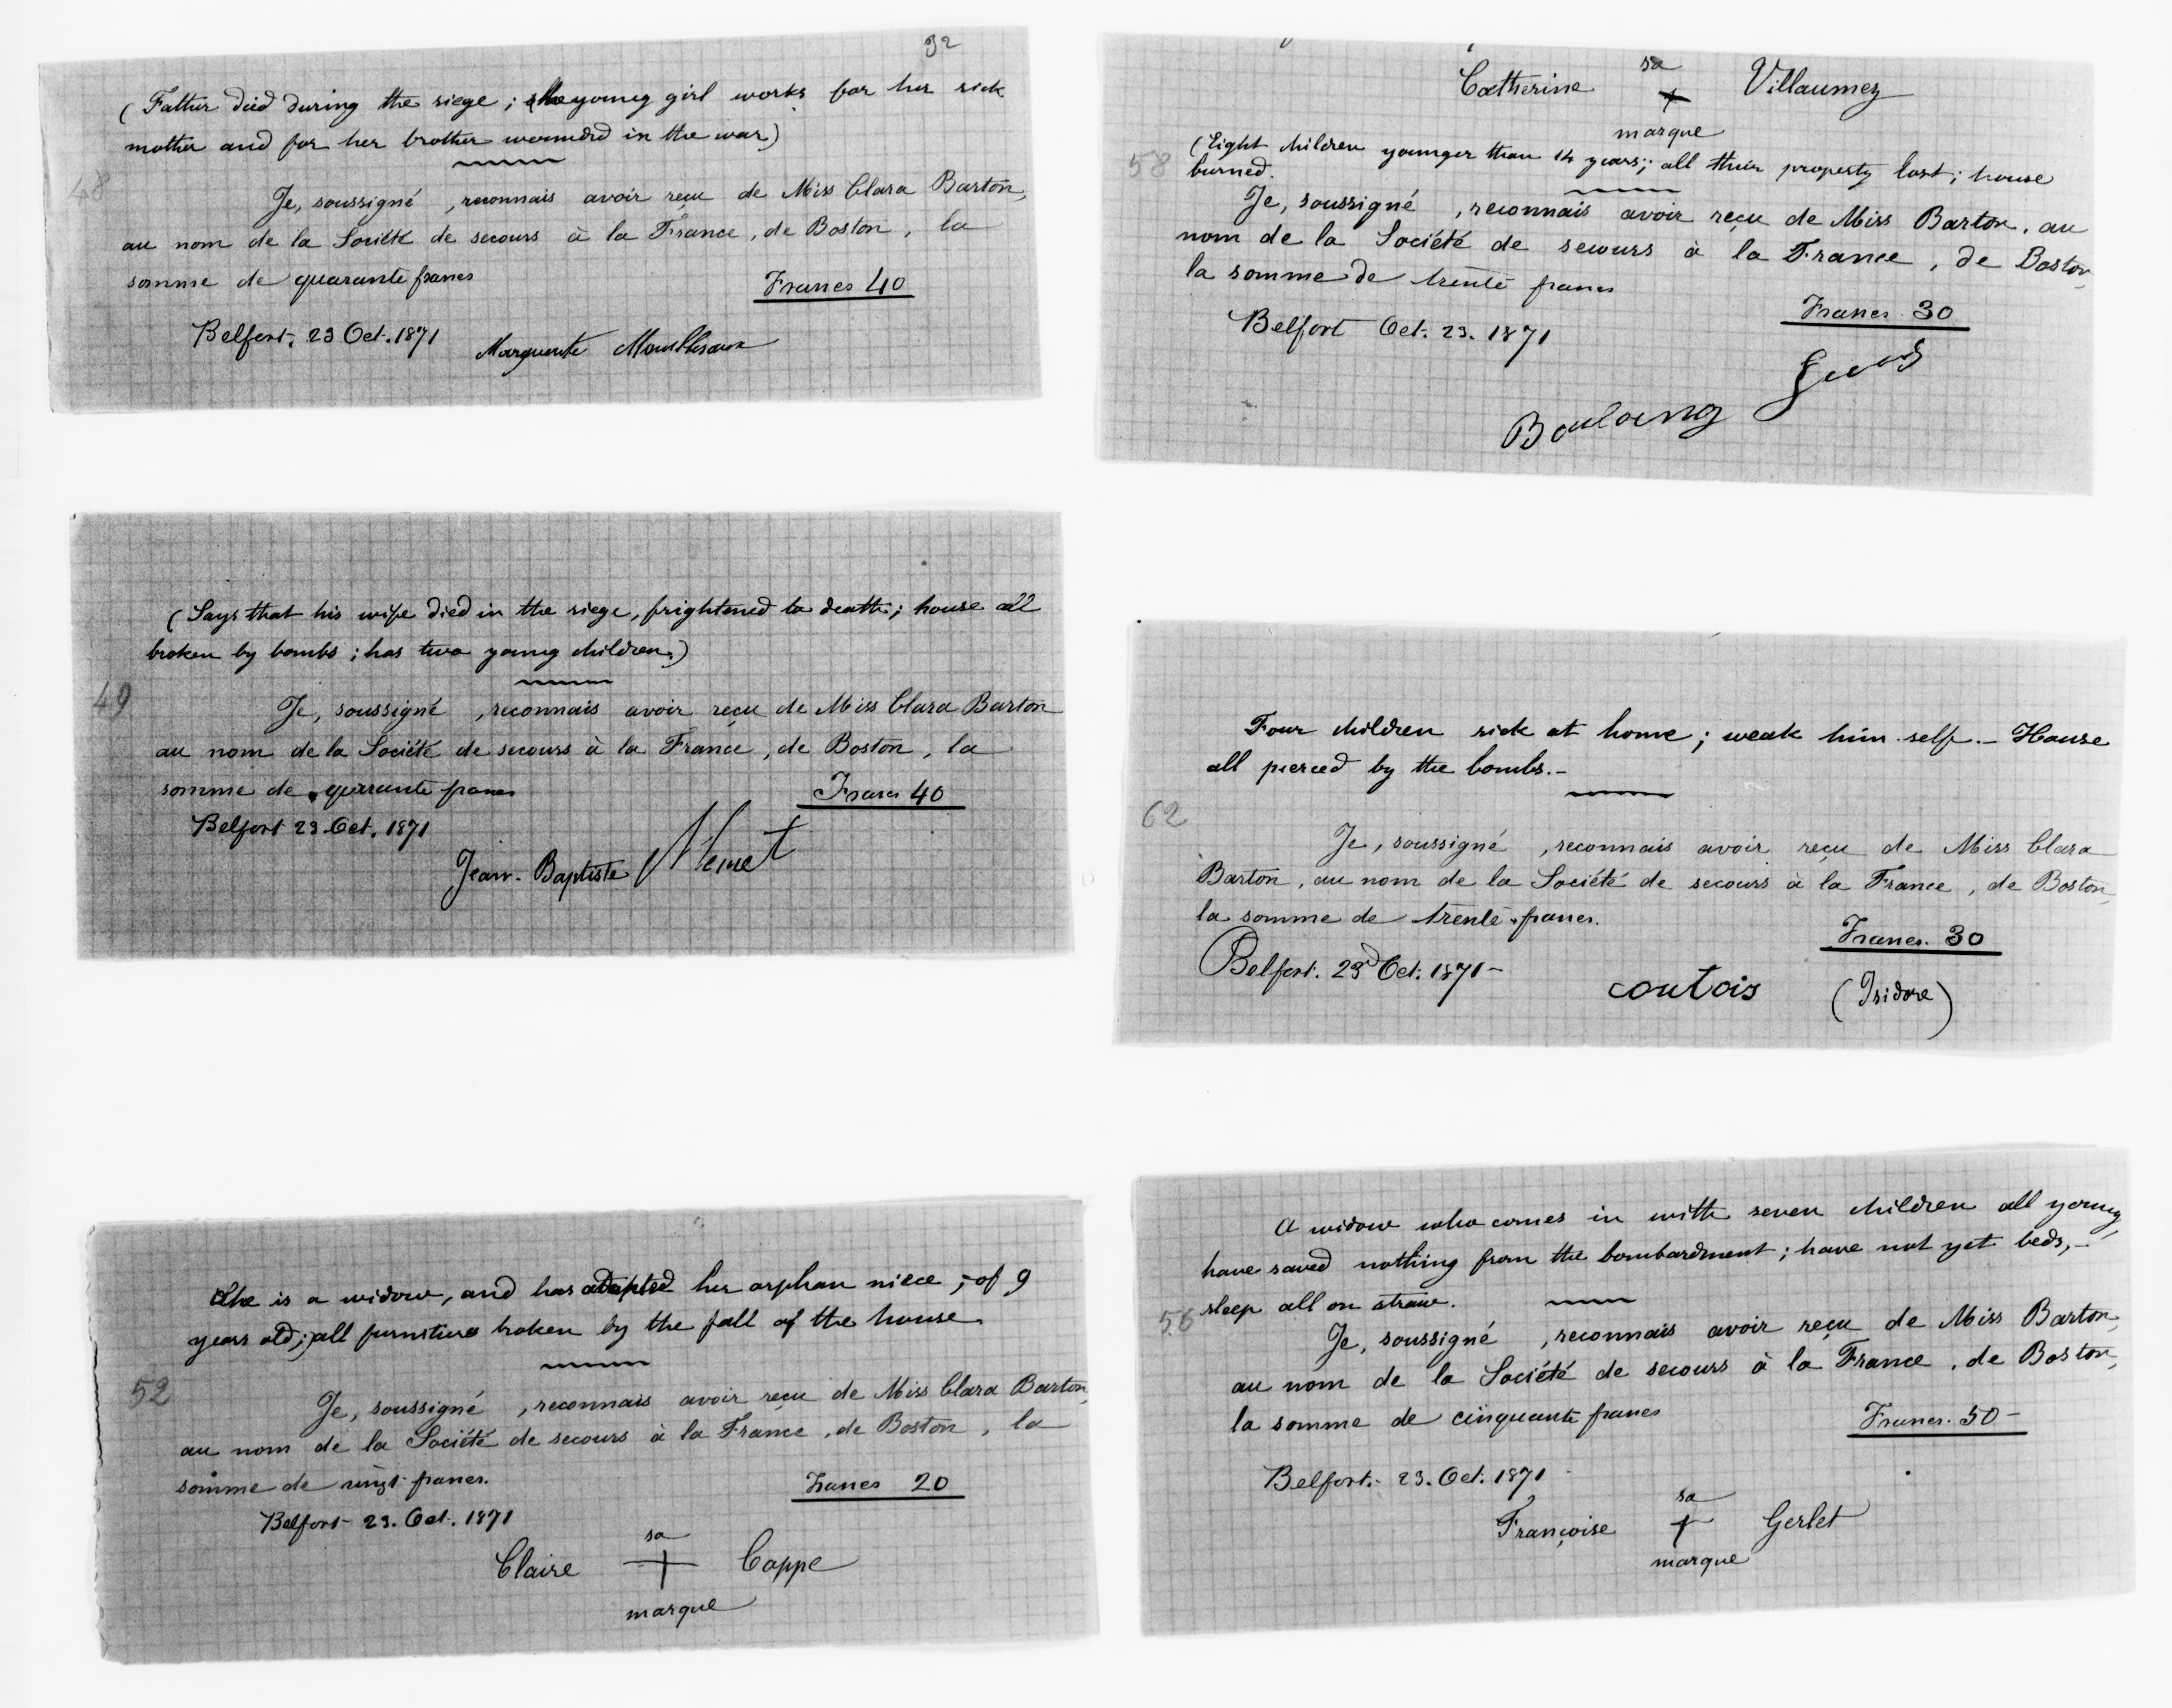 92
(Father died during the siege; the young girl works for her sick
mother and for her brother wounded in the war)
48
Je, soussigné , reconnais avoir reçu de Miss Clara Barton,
au nom de la Société de secours à la France, de Boston, la
somme de quarante francs
Francs 40
Belfort, 23 Oct. 1871
Marguerite
(Says that his wife died in the siege, frightened to death; house all
broken by bombs; has two young children.)
49
Je, soussigné , reconnais avoir reçu de Miss Clara Barton
au nom de la Société de secours à la France, de Boston, la
somme de quarante francs
Francs 40
Belfort 23 Oct. 1871
Jean-Baptiste
She is a widow, and has adopted her orphan niece, of 9
years old; all furniture broken by the fall of the house
52
Je, soussigné , reconnais avoir reçu de Miss Clara Barton,
au nom de la Société de secours à la France, de Boston, la
somme de vingt francs.
Francs 20
Belfort 23. Oct. 1871
Claire sa + marque Cappe
Catherine sa + marque Villaumez
(Eight children younger than 14 years; all their property lost; house
58
burned.
Je, soussigné , reconnais avoir reçu de Miss Barton, au
nom de la Société de secours à la France, de Boston,
la somme de trente francs
Francs 30
Belfort Oct. 23. 1871
Four children sick at home; weak him self. – House
all pierced by the bombs. –
62
Je, soussigné , reconnais avoir reçu de Miss Clara
Barton, au nom de la Société de secours à la France, de Boston,
la somme de trente francs.
Francs. 30
Belfort. 23d Oct. 1871 –
coutois (Isidore)
A widow who comes in with seven children all young,
have saved nothing from the bombardment; have not yet beds, –
56
sleep all on straw.
Je, soussigné , reconnais avoir reçu de Miss Barton,
au nom de la Société de secours à la France, de Boston,
la somme de cinquante francs
Francs. 50 –
Belfort. 23. Oct. 1871
Françoise sa + marque Gerlet